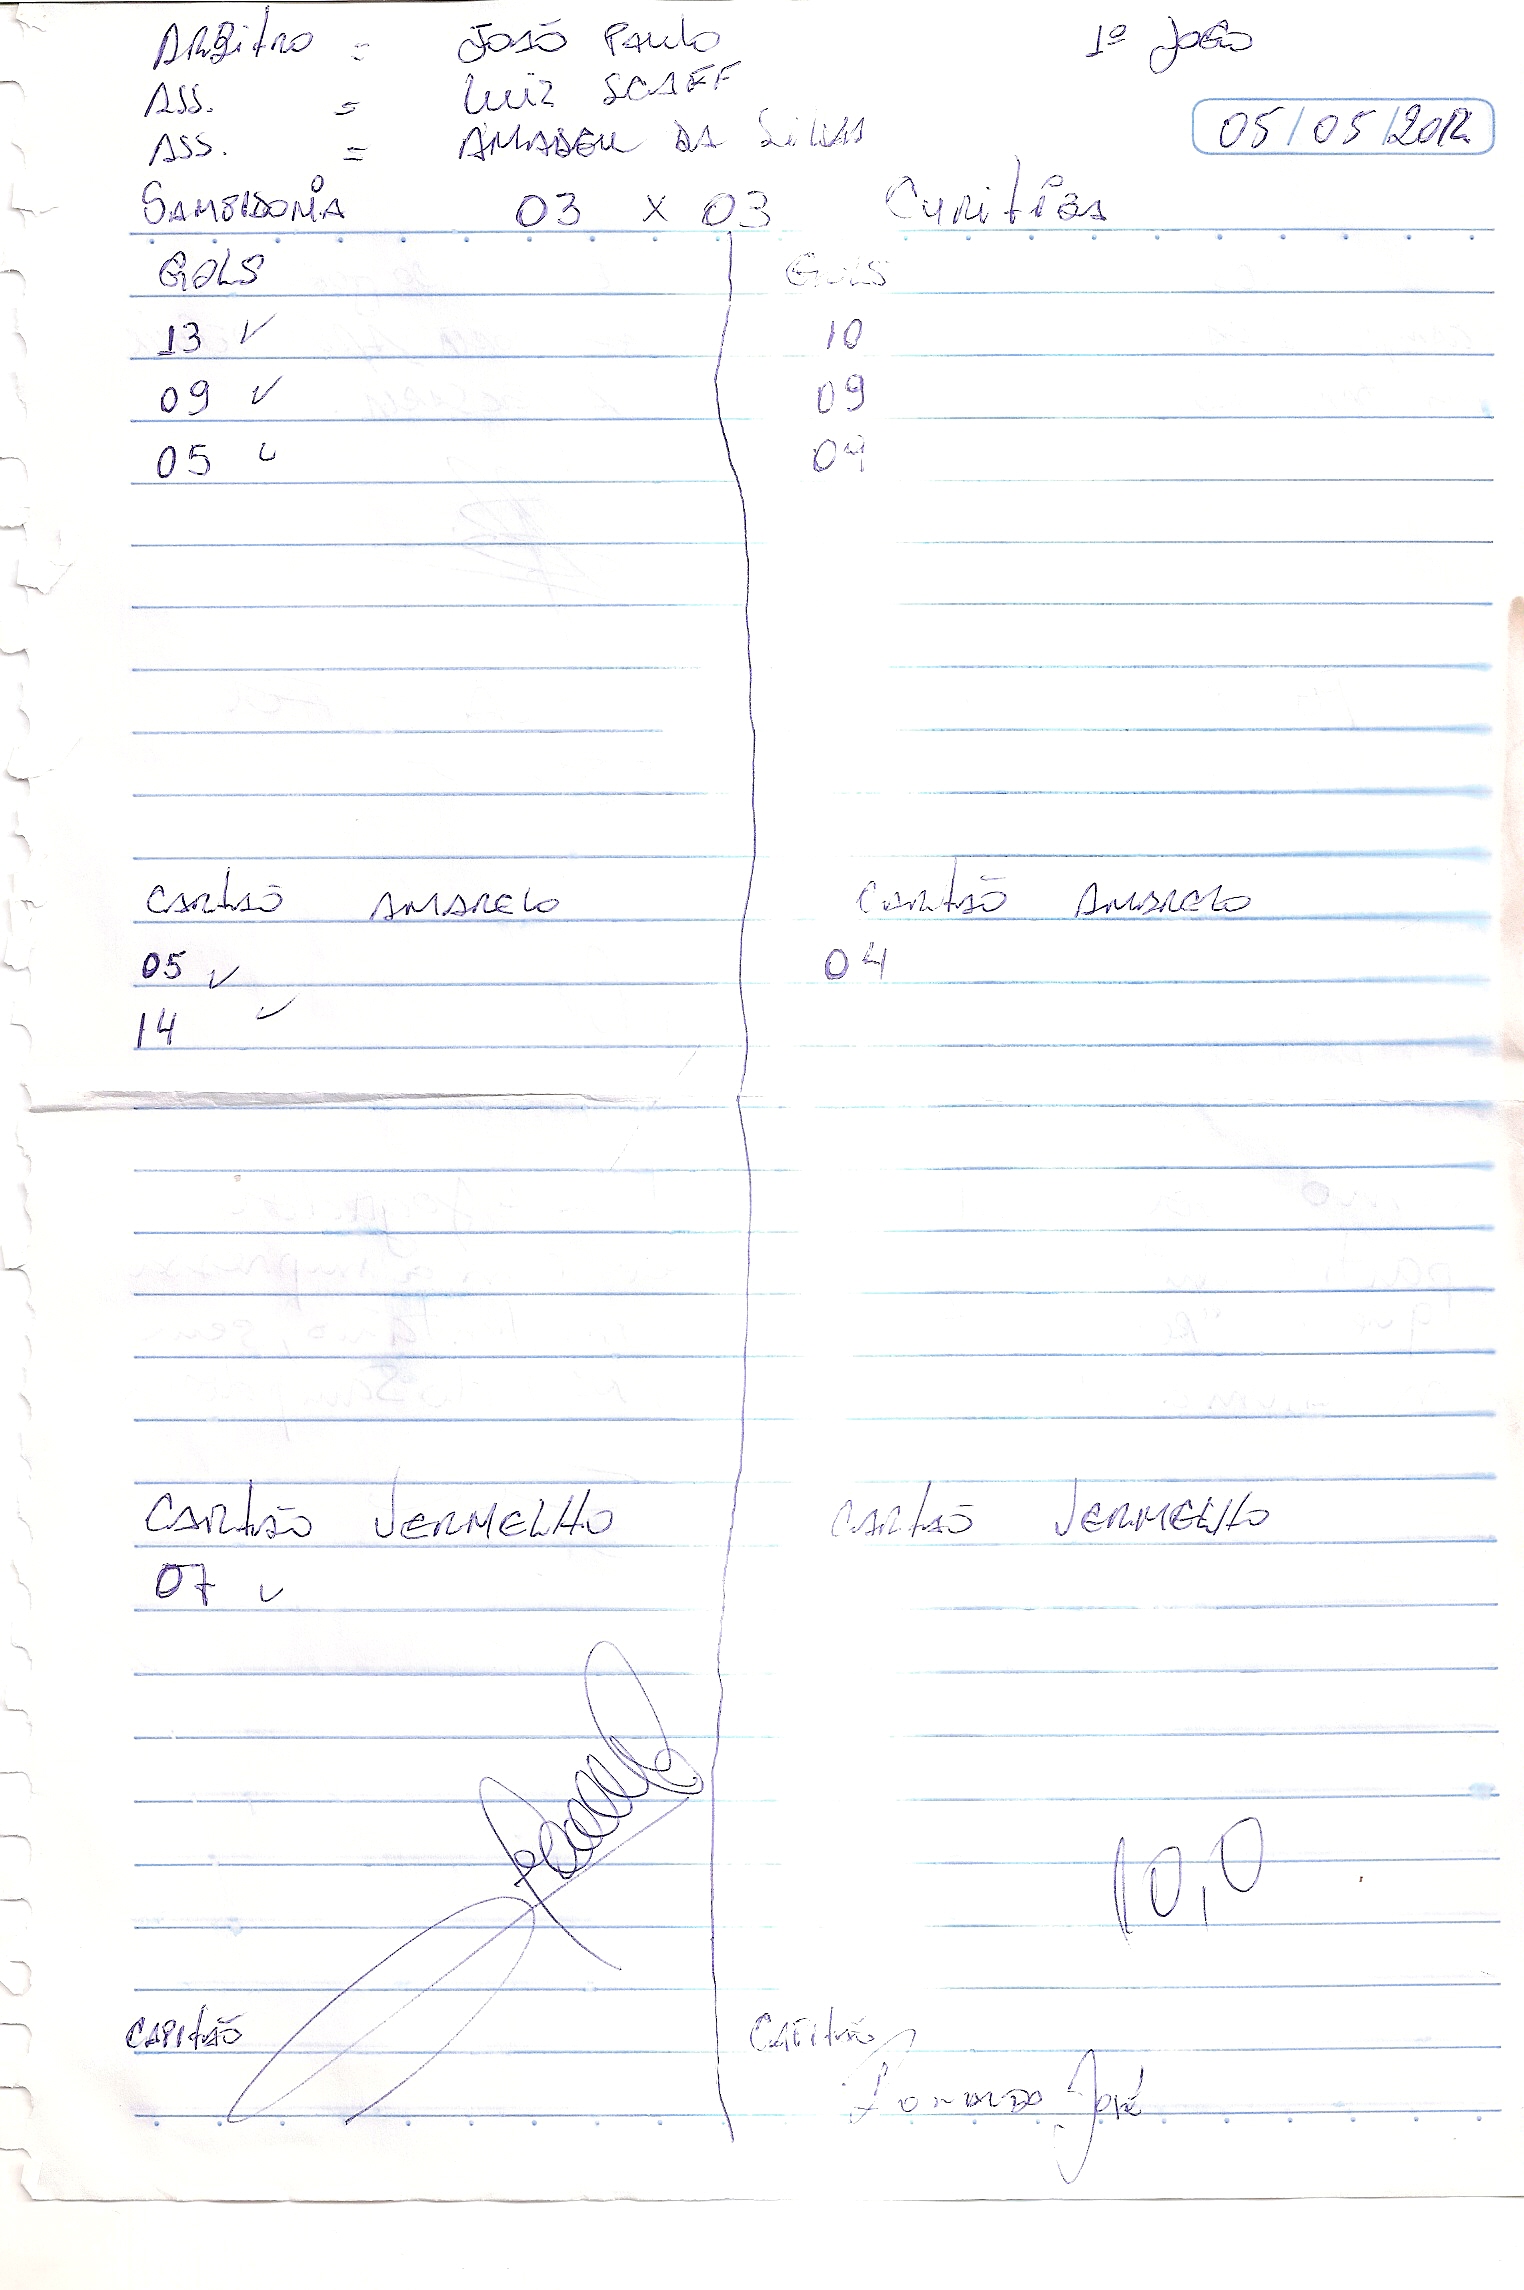 Arbitro = João Paulo 1º Jogo
Ass. = Luiz Scaff
Ass. = Amadeu da Silva 05/05/2012
03 x 03 Curitiba
Gols Gols
13 ✓ 10
09 ✓ 09
05 ✓ 04
Cartão Amarelo Cartão Amarelo
05 ✓ 04
14 ✓
Cartão Vermelho Cartão Vermelho
07 ✓
10,0
Capitão Capitão
José